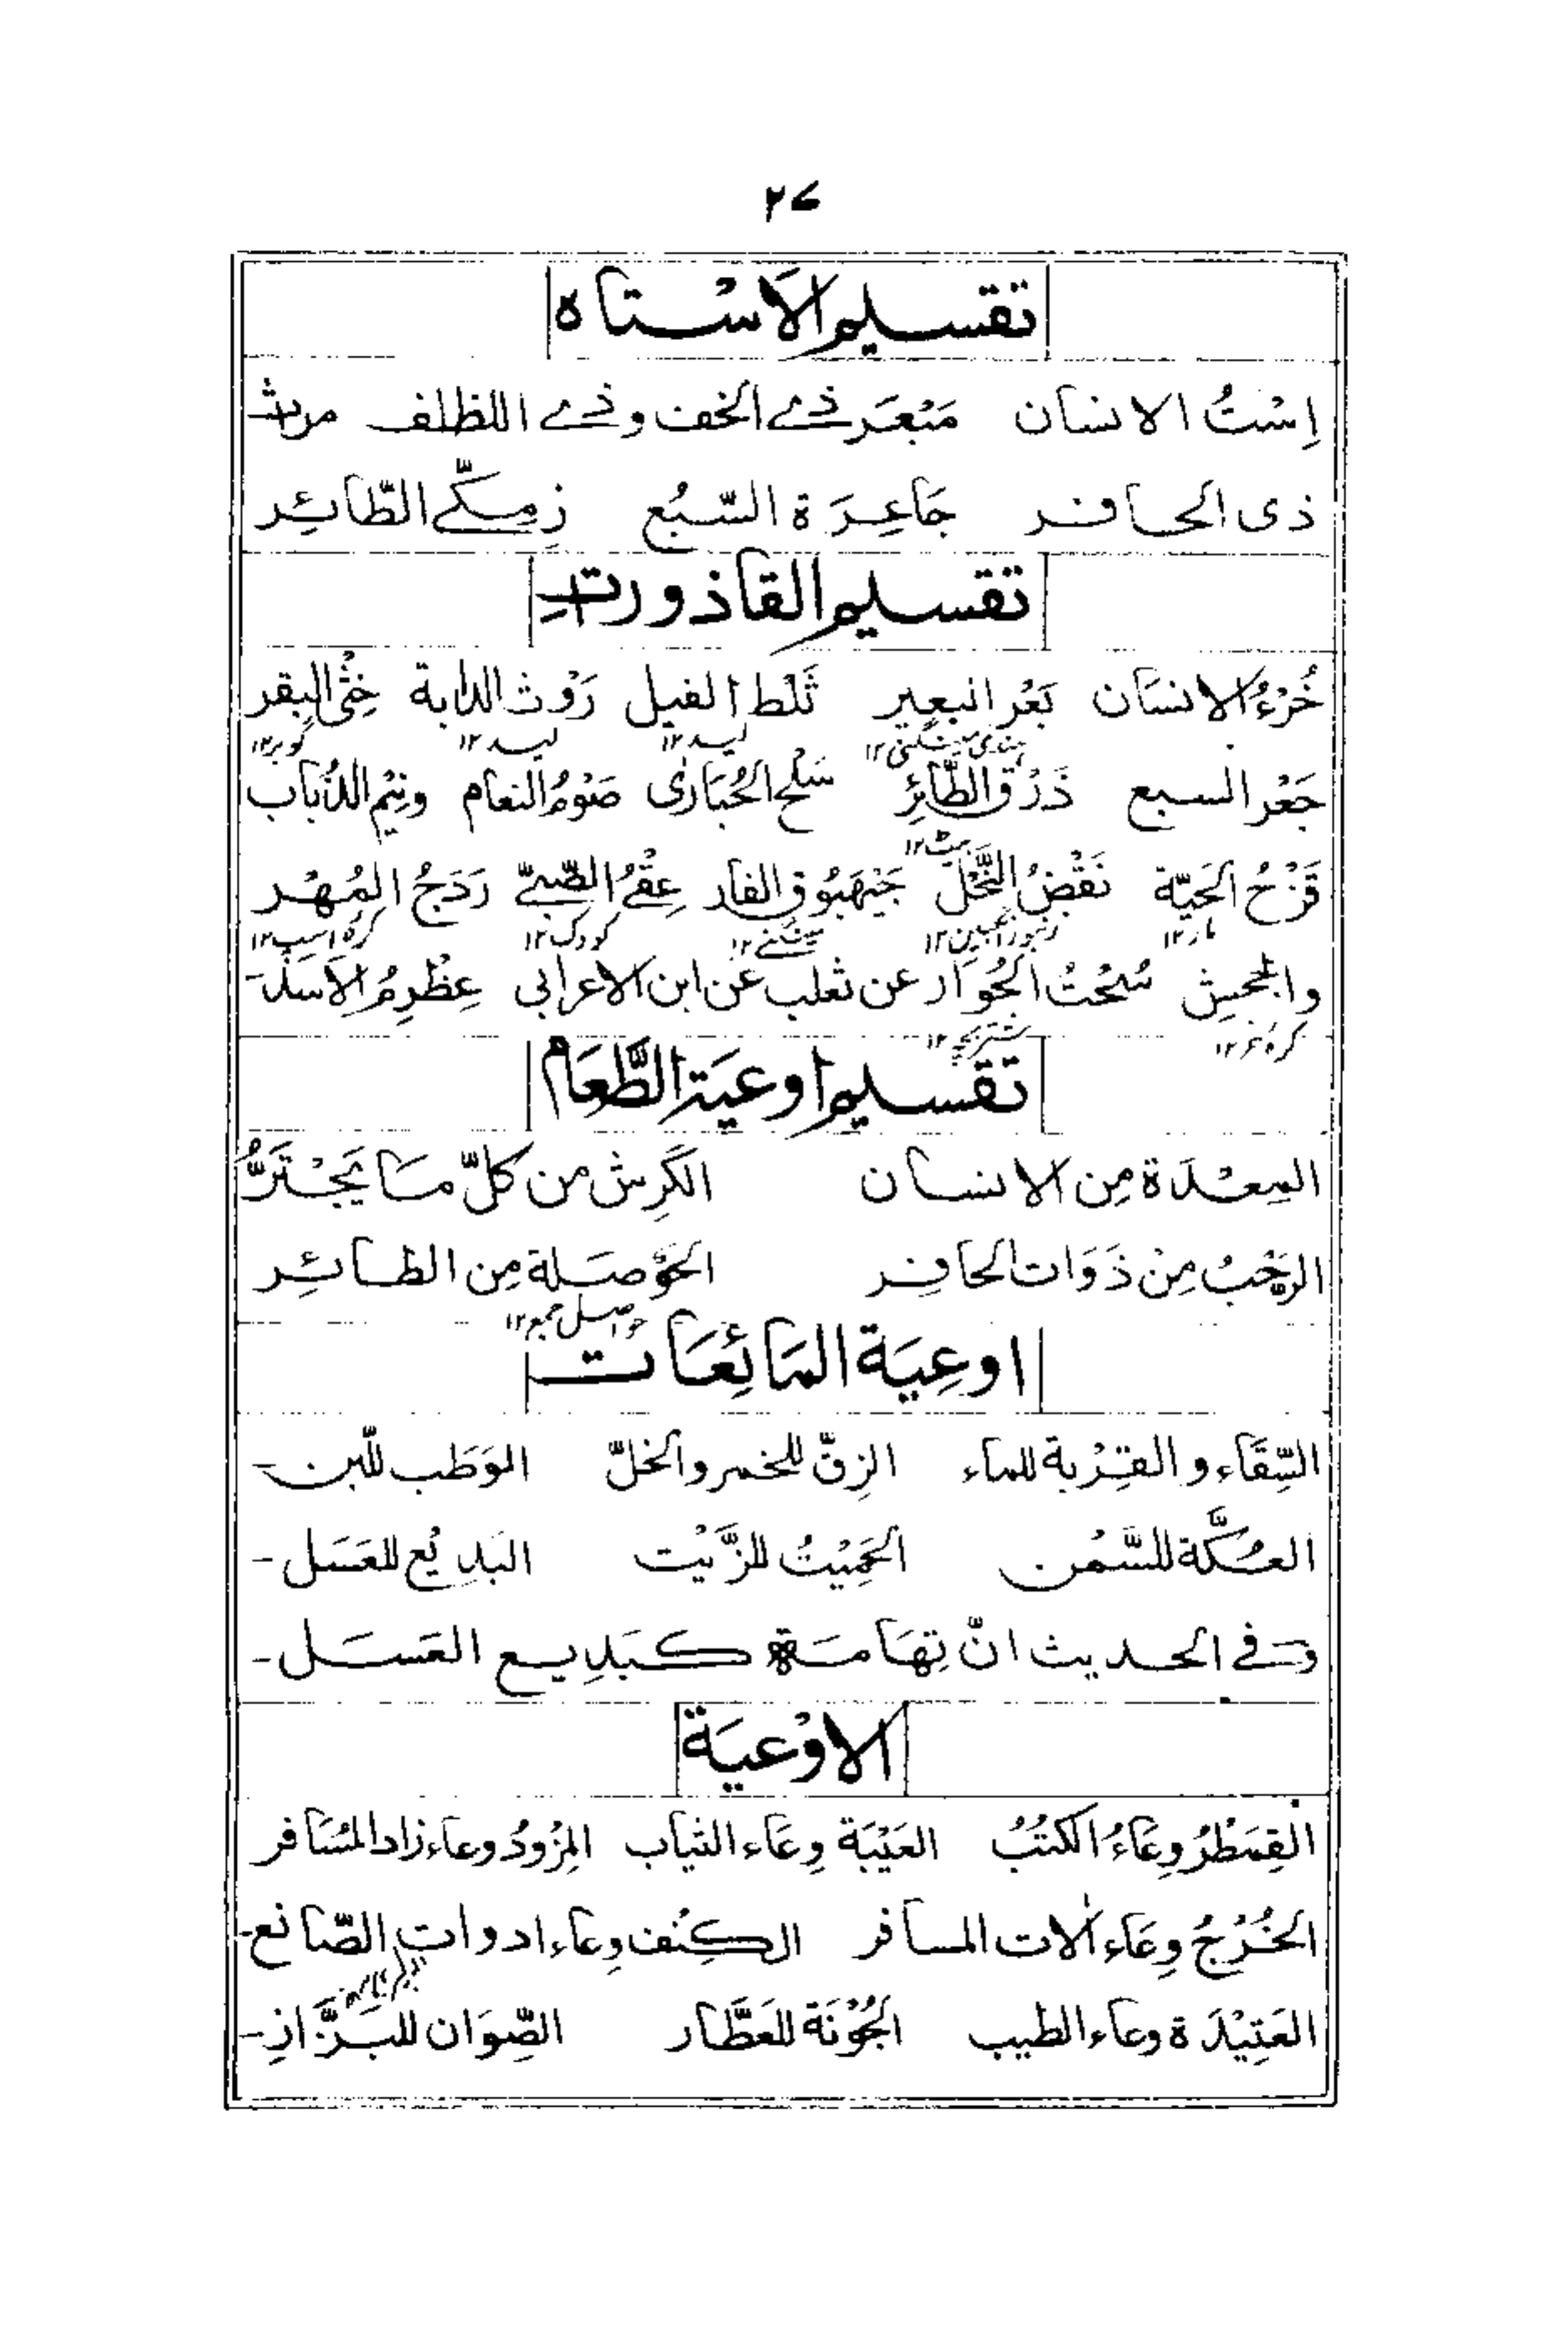 ۲۷
تقسیم الاَسْتاہ
اِسْتُ الانسان مَبْعَر ذے الخف وذے اللظلف مرث
ذی الحافر جَاعِرَة السّبُع زِمِکّے الطّائِر
تقسیم القاذورتِ
خُرْءُ الانسَان بَعْر البعیر ثَلْط الفیل رَوْث الدابة خِثْی البقر
لید۱۲ لید۱۲ گوبر۱۲
جَعْر السبع ذَرْق الطَّائِرِ سَلْح الحُبَارٰی صَوْمُ النعام ونِیْم الذُّباب
بیٹ۱۲
قَزْحُ الحَیّة نَقْضُ النَّحْل جَیْهَبُوق الفار عِقْیُ الصَّبیّ رَدَجُ المُهْر
مار۱۲ زنبور انگبین۱۲ مینگنے۱۲ کودک۱۲ کرہ اسپ۱۲
والجحیش سُخْتُ الحُوَار عن ثعلب عَن ابن الاعرابی عِظْرِمُ الاَسَد-
کرہ خر۱۲ شتر بچہ۱۲
تقسیم اوعیَة الطَّعَام
المِعْدَة مِن الانسان الکَرِش من کلّ مَا یَجْتَرُّ
الرُحْبُ مِنْ ذَوَات الحافر الحَوْصَلة مِن الطائِر
حواصل جمع۱۲
اوعِیَة المَائِعَات
السِّقَاء والقِرْبة للماء الزِقّ للخمر والخلّ الوَطَب للّبن-
العُکَّة للسَّمْن الحَمِیْتُ للزَّیْت البَدِیْع للعَسَل-
وفی الحدیث انّ تِهَامَة کَبَدِیع العَسَل-
الاوْعیَة
القِمَطْرُ وِعَاءُ الکتُبُ العَیْبَة وِعَاء الثیاب المِزْوَدُ وعاء زاد المُسَافر
الخُرْجُ وِعَاء اٰلات المسافر الکِنْف وِعاء ادوات الصّانع-
العَتِیْدَة وعاء الطیب الجُوْنَة للعَطَّار الصِّوَان للبَزَّازِ-